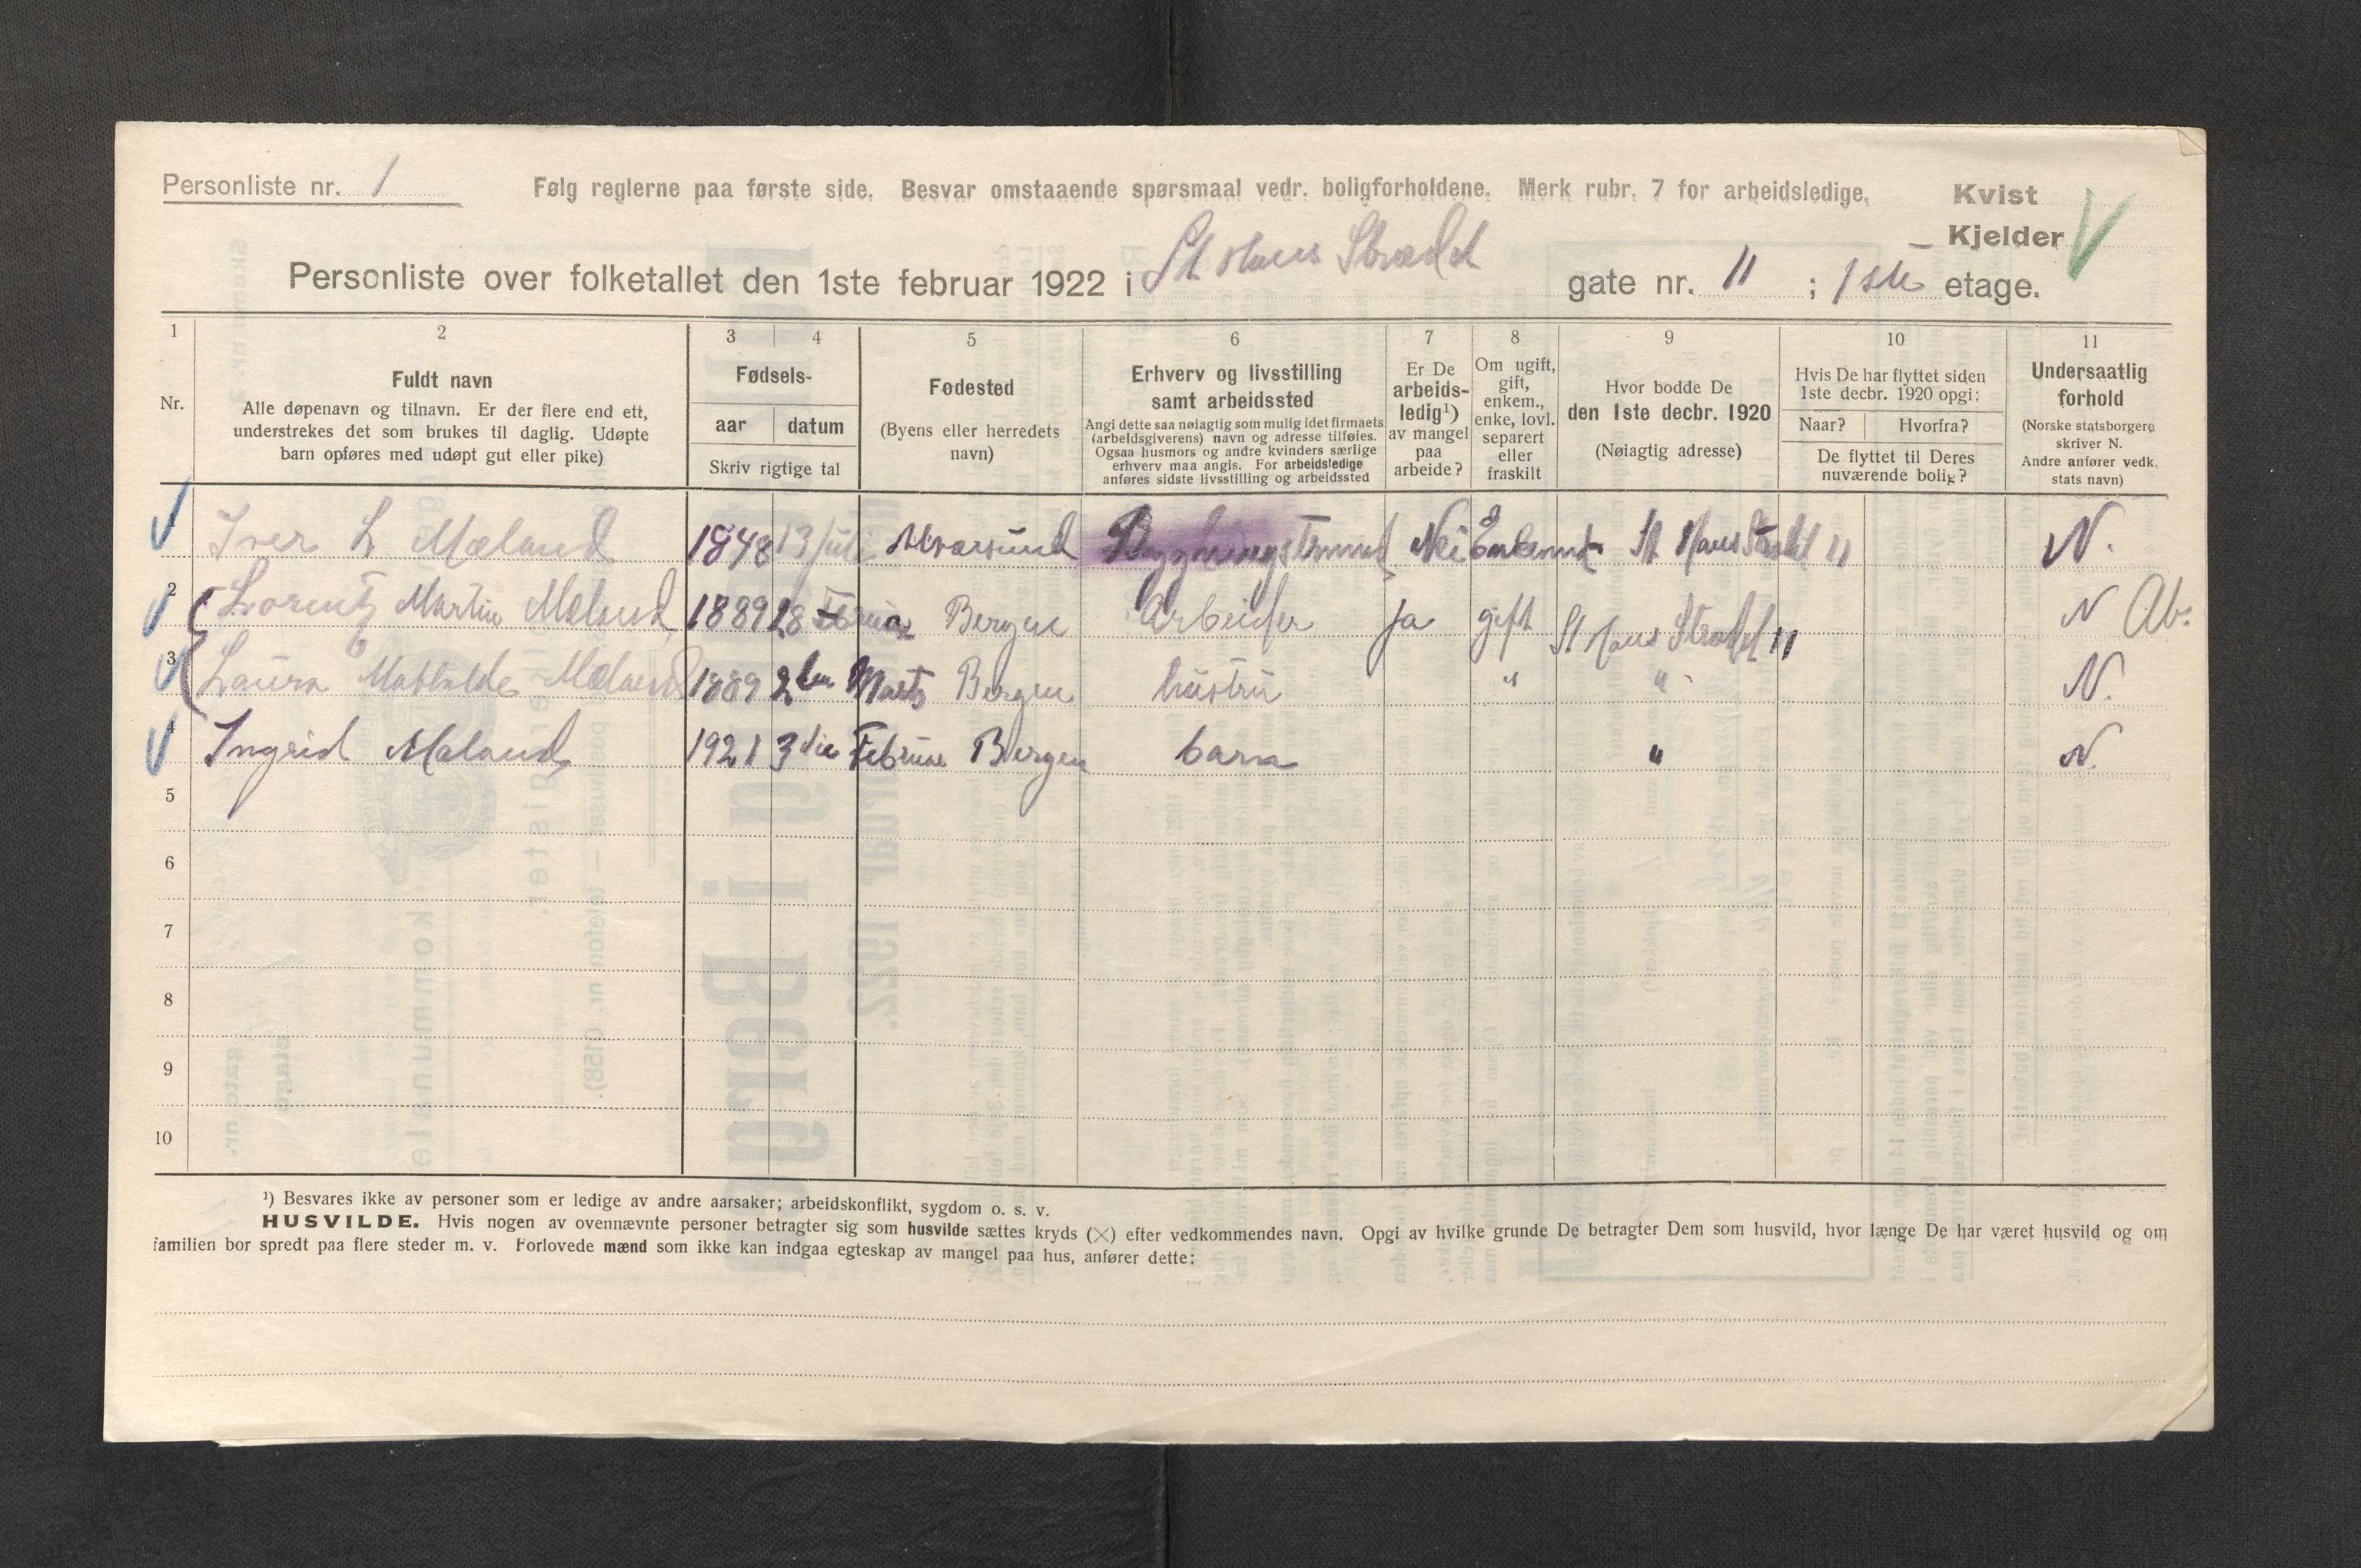 Personliste nr. 1
Følg reglerne paa første side. Besvar omstaaende spørsmaal vedr. boligforholdene. Merk rubr. 7 for arbeidsledige.
Kvist
Kjelder
Personliste over folketallet den 1ste februar 1922 i St Hans Strædet gate nr. 11 ; 1ste etage.
1 2 3 4 5 6 7 8 9 10 11
Nr.
Fuldt navn
Alle døpenavn og tilnavn. Er der flere end ett,
understrekes det som brukes til daglig. Udøpte
barn opføres med udøpt gut eller pike)
Fødsels-
aar datum
Skriv rigtige tal
Fødested
(Byens eller herredets
navn)
Erhverv og livsstilling
samt arbeidssted
Angi dette saa nøiagtig som mulig idet firmaets
(arbeidsgiverens) navn og adresse tilføies.
Ogsaa husmors og andre kvinders særlige
erhverv maa angis. For arbeidsledige
anføres sidste livsstilling og arbeidssted
Er De
arbeids-
ledig¹)
av mangel
paa
arbeide?
Om ugift,
gift,
enkem.,
enke, lovl.
separert
eller
fraskilt
Hvor bodde De
den 1ste decbr. 1920
(Nøiagtig adresse)
Hvis De har flyttet siden
1ste decbr. 1920 opgi:
Naar? Hvorfra?
De flyttet til Deres
nuværende bolig?
Undersaatlig
forhold
(Norske statsborgere
skriver N.
Andre anfører vedk.
stats navn)
Iver L Mæland 1848 13 juli Nei St Hans Strædet 11 N.
2 Lorentz Martin Mæland 1889 28 Bergen Arbeider ja gift St Hans Strædet 11 N Ab.
3 Laura Mathilde Mæland 1889 2den Marts Bergen hustru " " N.
Ingrid Mæland 1921 3die Februar Bergen barn " N.
5
6
7
8
9
10
¹) Besvares ikke av personer som er ledige av andre aarsaker; arbeidskonflikt, sygdom o. s. v.
HUSVILDE. Hvis nogen av ovennævnte personer betragter sig som husvilde sættes kryds (×) efter vedkommendes navn. Opgi av hvilke grunde De betragter Dem som husvild, hvor længe De har været husvild og om
familien bor spredt paa flere steder m. v. Forlovede mænd som ikke kan indgaa egteskap av mangel paa hus, anfører dette: